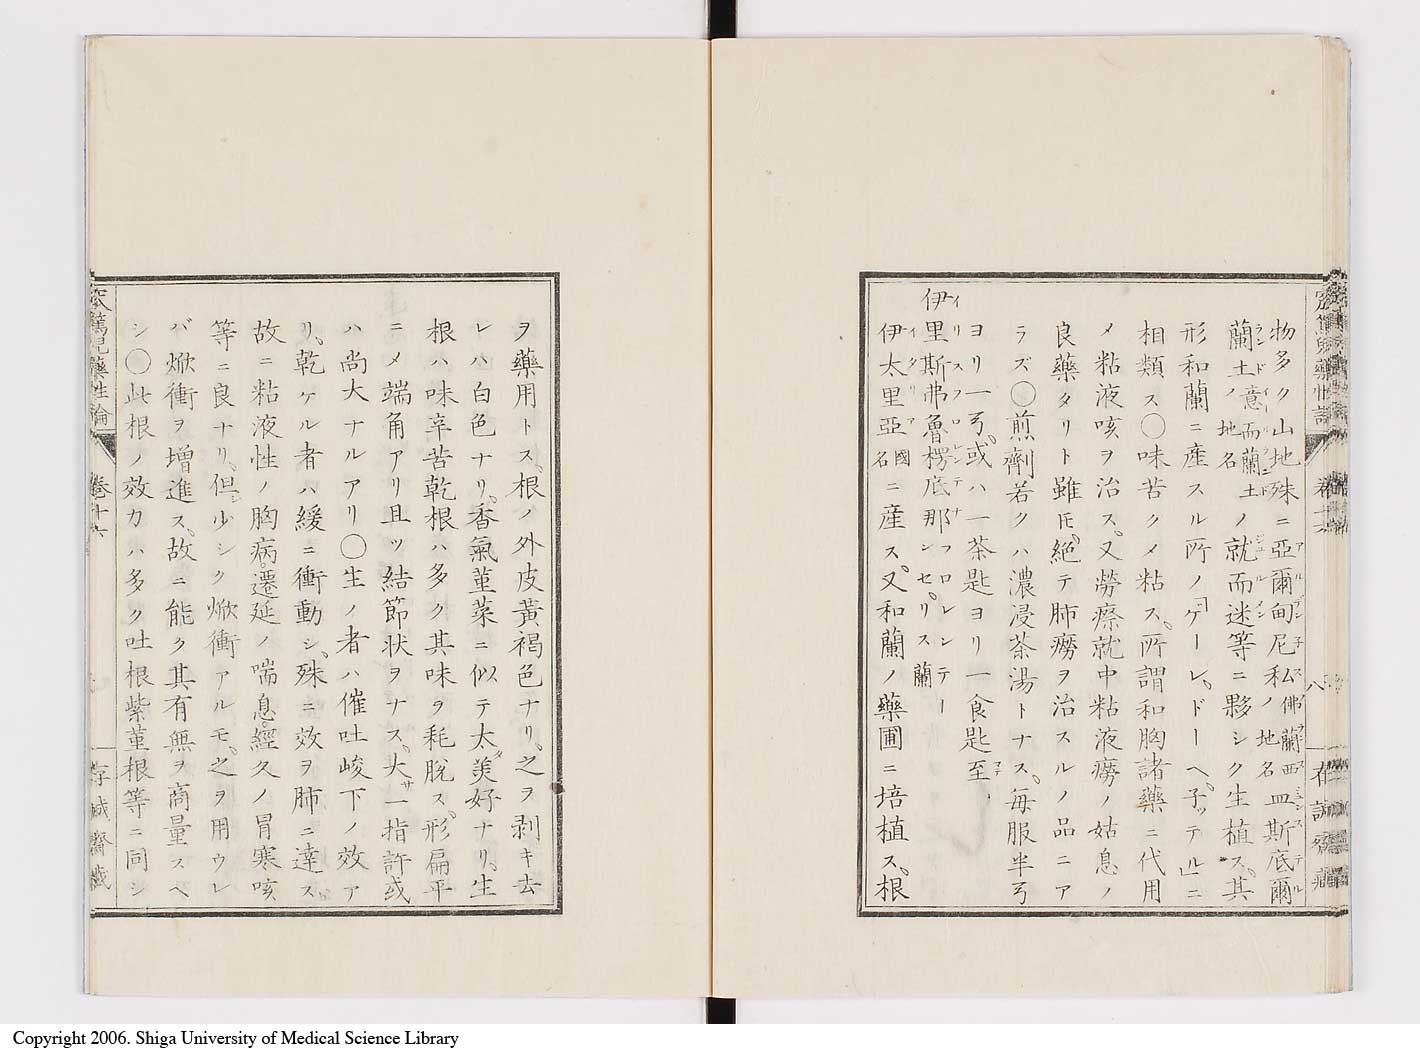 物多ク山地殊ニ亞爾甸尼私ノ佛蘭西地名皿斯底爾
蘭土ノ地名意而蘭土ノ就而迷等ニ夥シク生植ス其
形和蘭ニ産スル所ノ「ゲーレ、ドーヘ、子ッテル」ニ
相類ス〇味苦クメ粘ス所謂和胸諸藥ニ代用
メ粘液咳ヲ治ス又勞瘵就中粘液癆ノ姑息ノ
良藥タリト雖𪜈絶テ肺癆ヲ治スルノ品ニア
ラズ〇煎劑若クハ濃浸茶湯トナス毎服半弓
ヨリ一弓或ハ一茶匙ヨリ一食匙至
伊里斯弗魯楞底那フロレンテーンセリス蘭
伊太里亞國名ニ産ス又和蘭ノ藥圃ニ培植ス根
ヲ藥用トス根ノ外皮黃褐色ナリ之ヲ剥キ去
レハ白色ナリ香氣菫菜ニ似テ太タ美好ナリ生
根ハ味辛苦乾根ハ多ク其味ヲ耗脫ス形扁平
ニメ端角アリ且ツ結節狀ヲナス大サ一指許或
ハ尚大ナルアリ〇生ノ者ハ催吐峻下ノ效ア
リ乾ケル者ハ緩ニ衝動シ殊ニ效ヲ肺ニ達ス
故ニ粘液性ノ胸病遷延ノ喘息經久ノ冒寒咳
等ニ良ナリ但シ少シク焮衝アルモ之ヲ用ウレ
バ焮衝ヲ增進ス故ニ能ク其有無ヲ商量スベ
シ〇此根ノ效力ハ多ク吐根紫菫根等ニ同シ
篤兒藥性論 卷十六 存誠齋藏
Copyright 2006. Shiga University of Medical Science Library